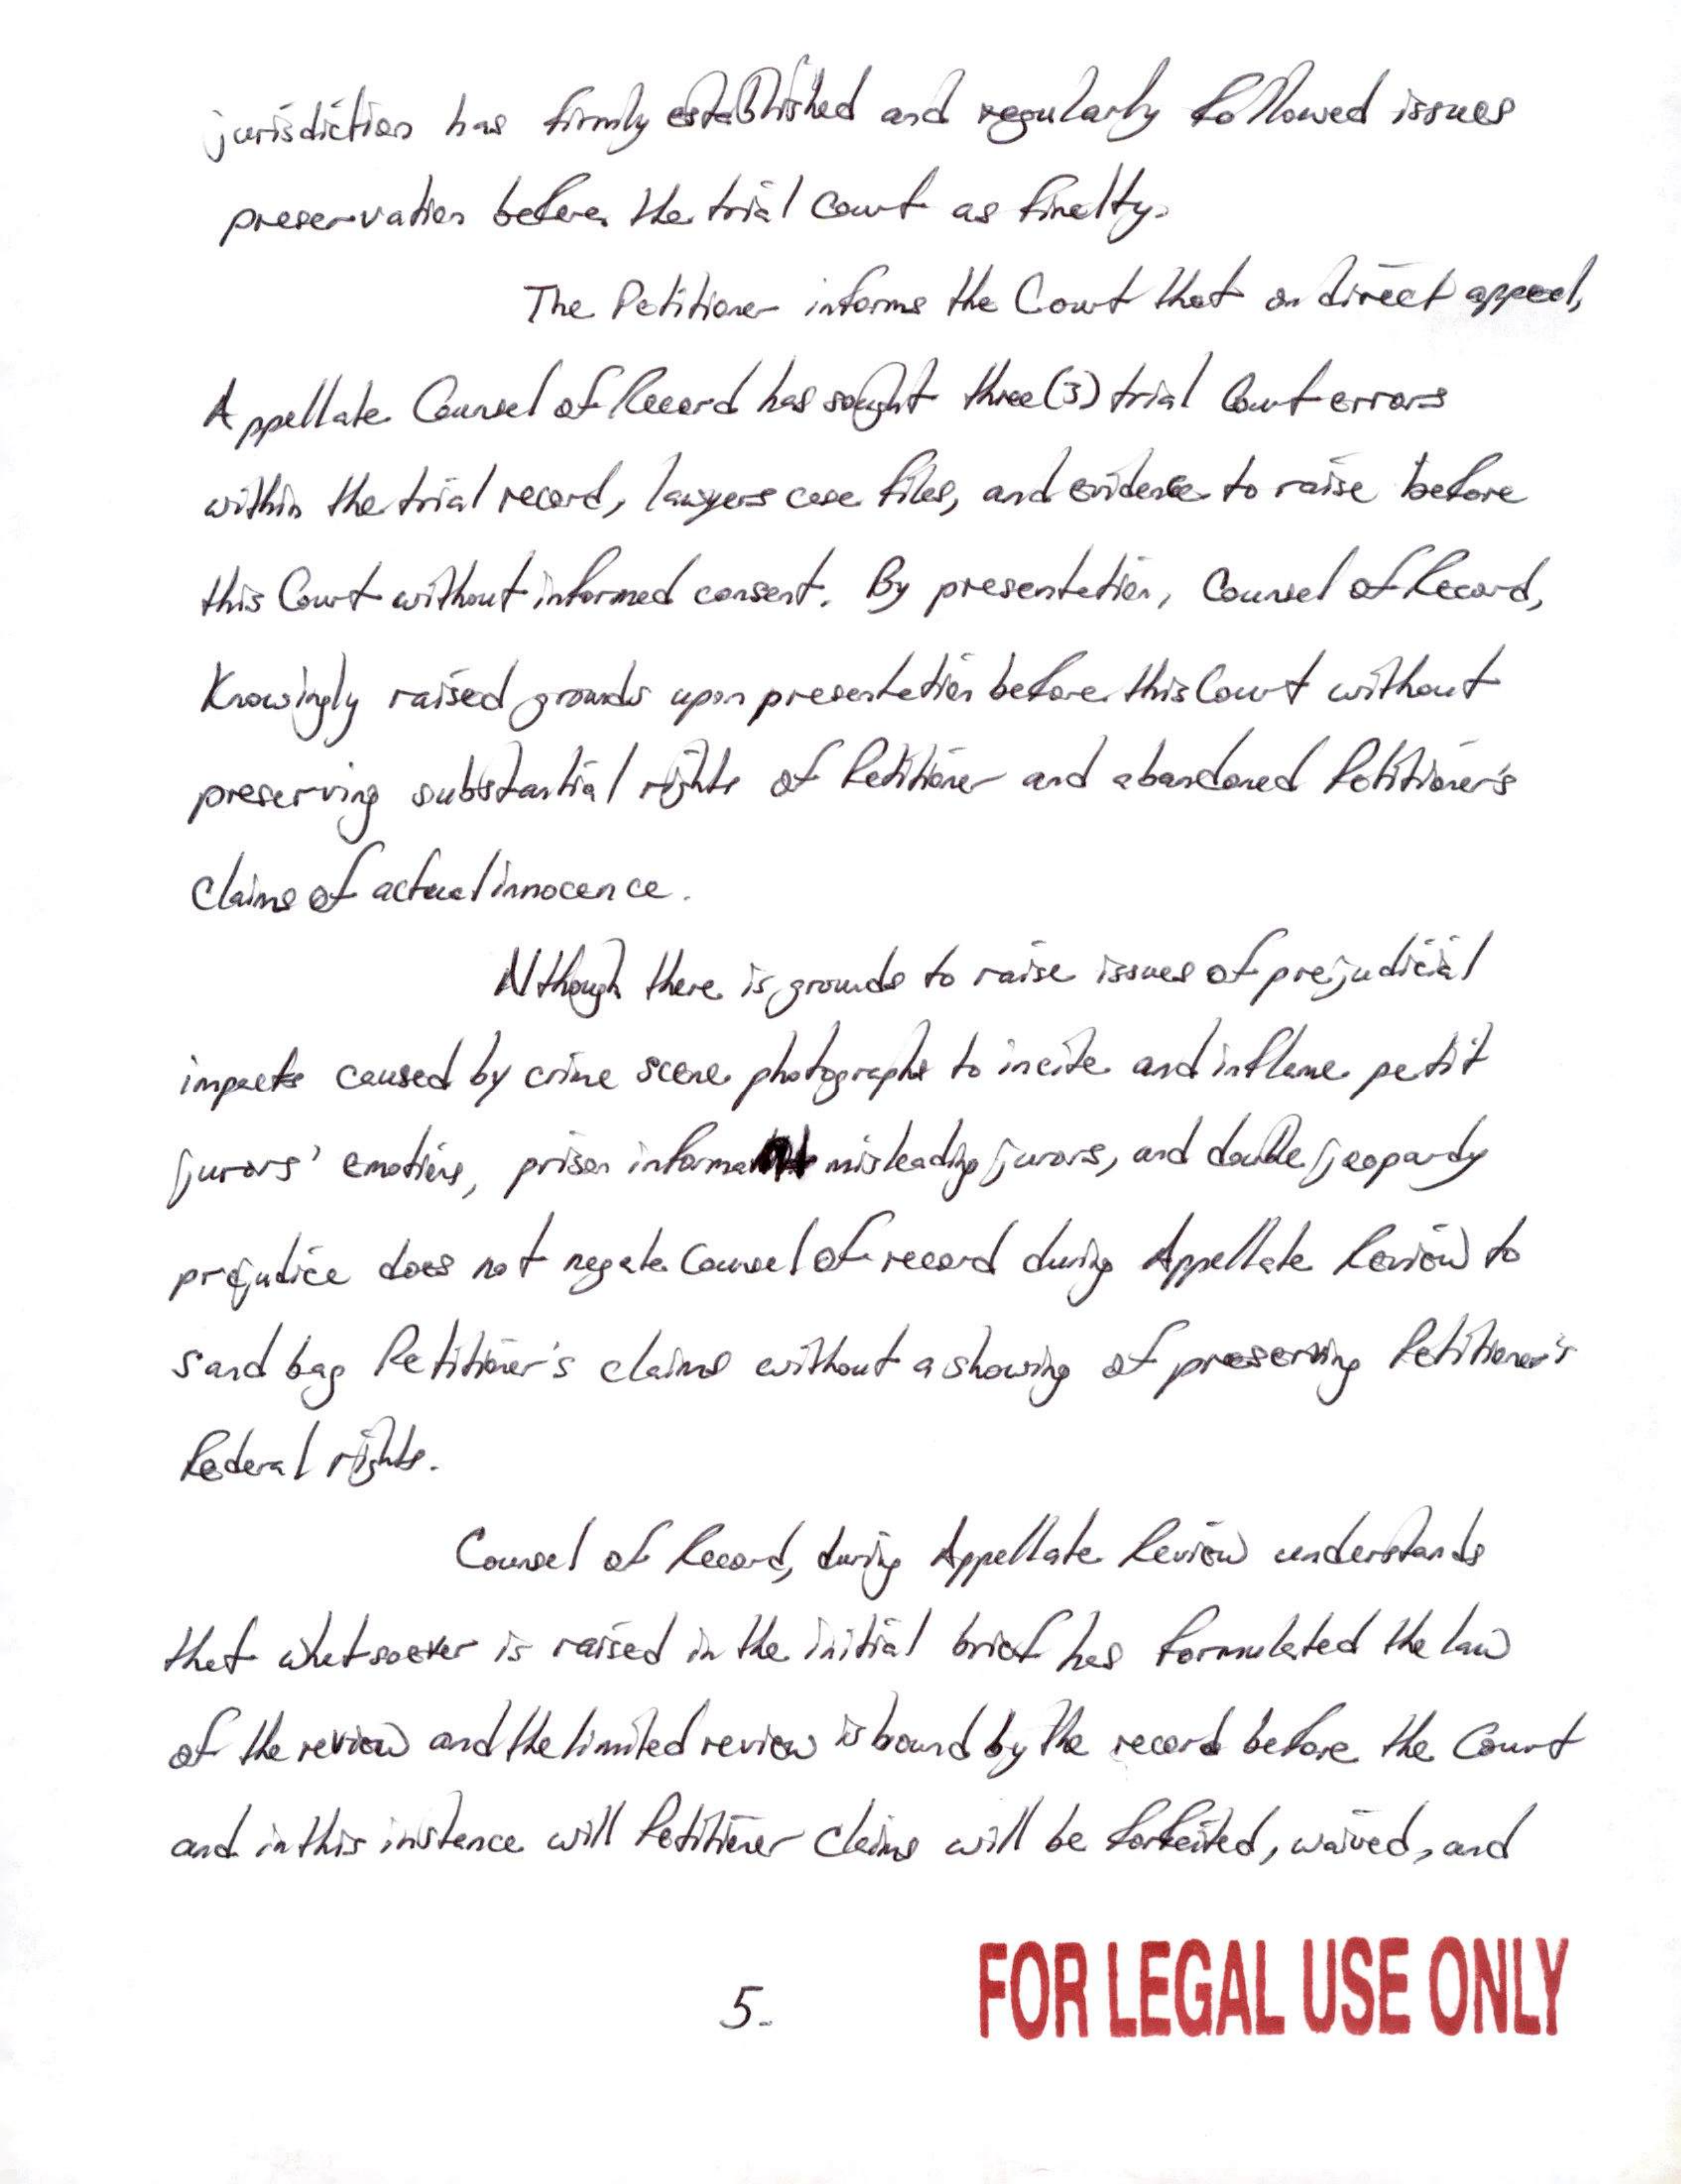 jurisdiction has firmly established and regularly followed issues
preservation before the trial Court as finelty.
The Petitioner informs the Court that on direct appeal,
Appellate Counsel of Record has sought three (3) trial Court errors
within the trial record, lawyers case files, and evidence to raise before
this Court without informed consent. By presentation, Counsel of Record,
Knowingly raised grounds upon presentation before this Court without
preserving substantial rights of Petitioner and abandoned Petitioner's
Claims of actual innocence.
Although there is grounds to raise issues of prejudicial
impacts caused by crime scene photographs to incite and inflame petit
jurors' emotions, prison informant misleading jurors, and double jeopardy
prejudice does not negate Counsel of record during Appellate Review to
sand bag Petitioner's claims without a showing of preserving Petitioner's
Federal rights.
Counsel of Record, during Appellate Review understands
that whatsoever is raised in the initial brief has formulated the law
of the review and the limited review is bound by the record before the Court
and in this instance will Petitioner Claims will be forfeited, waived, and
5.
FOR LEGAL USE ONLY